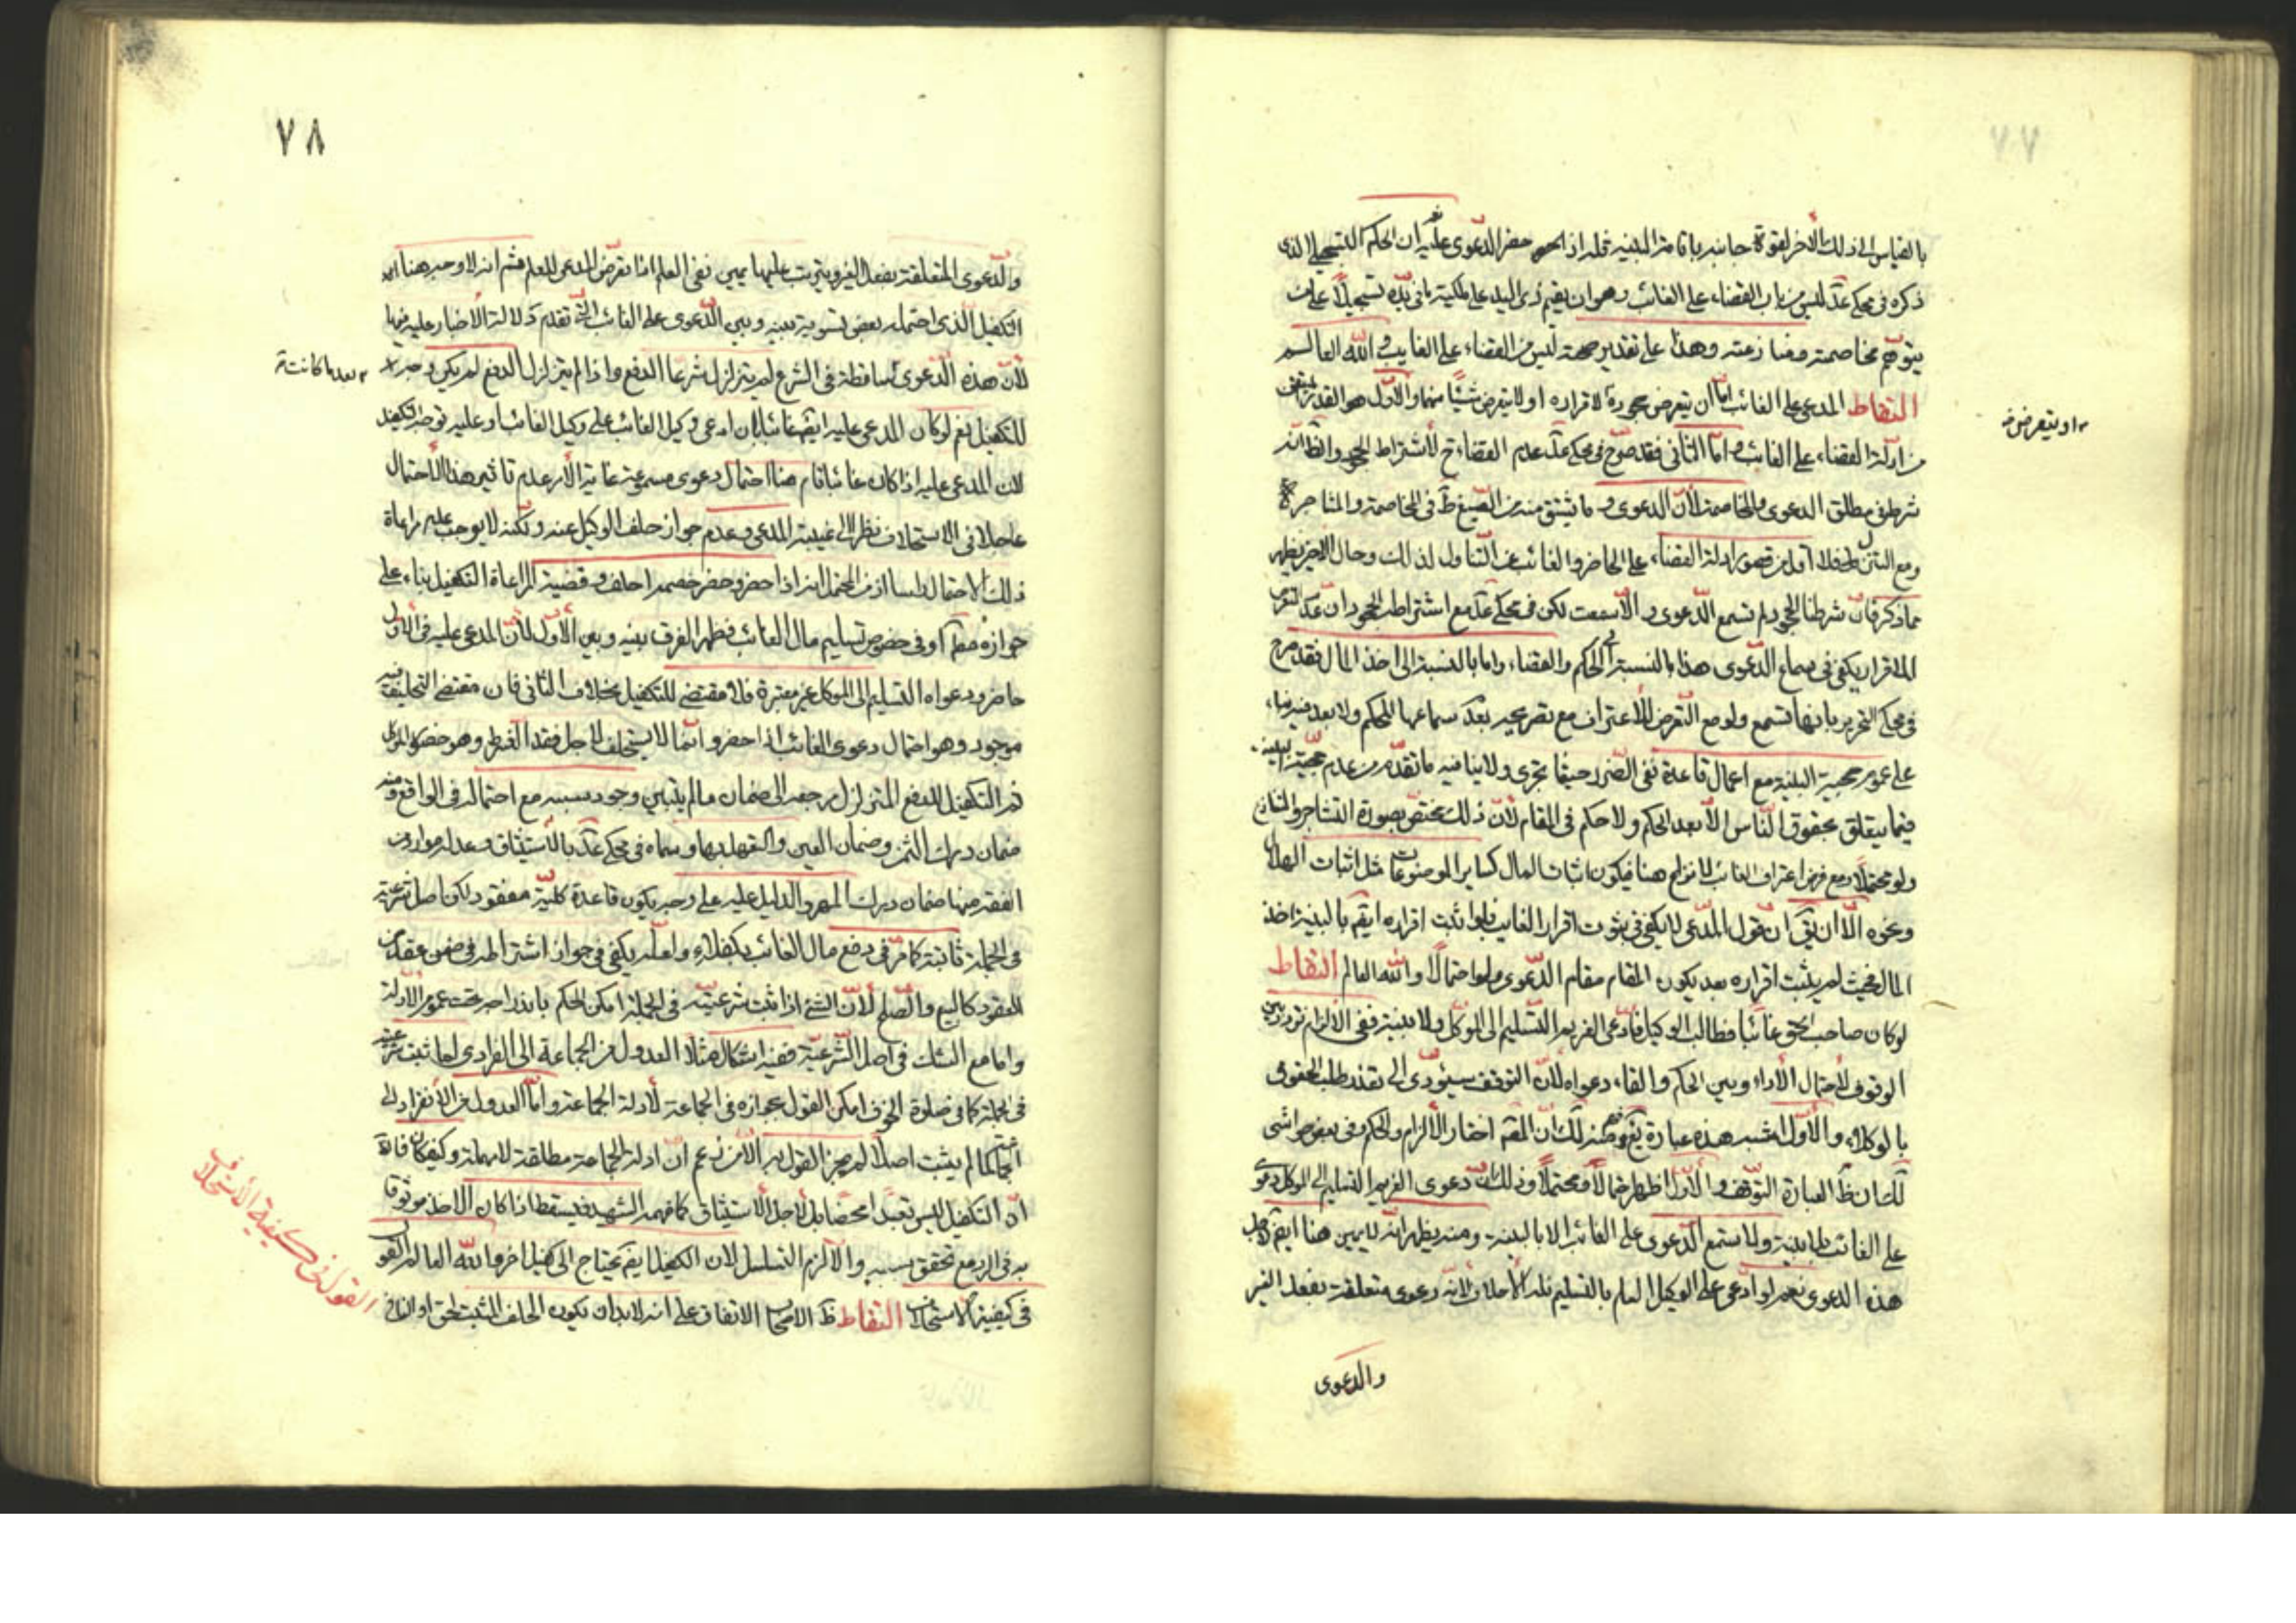 ٧٧
بالقياس الى ذلك الآخر لقوة جانبه باقامة البينة فله اذا حضر الدعوى عليه ان الحكم التسجيلي الذي
ذكره في محكي عد ليس من باب القضاء على الغائب وهو ان يقيم ذي اليد على ملكية ما في يده تسجيلا على من
يتوهم مخاصمته ومنازعته وهذا على تقدير صحته ليس من القضاء على الغايب والله العالم
التقاط المدعي على الغائب اما ان يتعرض جحوده لاقراره او لا يتعرض شيئا منهما والاول هو القدر المتيقن
او يتعرض
من ادلة القضاء على الغائب واما الثاني فقد صرح في محكي عد عدم القضاء ح لاشتراط الجحود والظ انه
شرط في مطلق الدعوى والمخاصمة لان الدعوى وما يشتق منه من الصيغ ظ في المخاصمة والمشاجرة
ومع التنزل فلا اقل من قصور ادلة القضاء على الحاضر والغائب عن التناول لذلك وحال الاخير يظهر
مما ذكر فان شرطنا الجحود لم تسمع الدعوى والا سمعت لكن في محكي عد مع اشتراط الجحود ان عدم التعرض
للاقرار يكفي في سماع الدعوى هذا بالنسبة الى الحكم والقضاء واما بالنسبة الى اخذ المال فقد صرح
في محكي التحرير بانها تسمع ولو مع التعرض للاعتراف مع تصريحه بعدم سماعها للحكم ولا بعد فيه بناء
على عموم حجية البينة مع اعمال قاعدة نفي الضرر حيثما تجري ولا ينافيه ما تقدم من عدم حجية البينة
فيما يتعلق بحقوق الناس الا بعد الحكم ولا حكم في المقام لان ذلك مختص بصورة التشاجر والتنازع
ولو محتملا ومع فرض اعتراف الغائب لا نزاع هنا فيكون اثبات المال كساير الموضوعات مثل اثبات الهلال
ونحوه الا ان يق ان قول المدعي لا يكفي في ثبوت اقرار الغايب فلو اثبت اقراره ايضا بالبينة اخذ
المال فحيث لم يثبت اقراره بعد يكون المقام مقام الدعوى ولو احتمالا والله العالم التقاط
لو كان صاحب الحق غائبا فطالب الوكيل فادعى الغريم التسليم الى الموكل ولا بينة ففي الالزام تردد بين
الوقوف لاحتمال الاداء وبين الحكم والغاء دعواه لان التوقف سيؤدي الى تعذر طلب الحقوق
بالوكلاء والاول اشبه هذه عبارة يع وفهم منه لك ان المص اختار الالزام والحكم وفي بعض حواشي
لك ان ظ العبارة التوقف والاول اظهر احتمالا محتملا وذلك لان دعوى الغريم التسليم الى الموكل دعوى
على الغائب بلا بينة ولا تسمع الدعوى على الغائب الا بالبينة ومنه يظهر انه لا يمين هنا ايضا لاجل
هذه الدعوى نعم لو ادعى على الوكيل العلم بالتسليم فله الاحلاف لانه دعوى متعلقة بفعل الغير
والدعوى
٧٨
والدعوى المتعلقة بفعل الغير ويترتب عليها يمين نفي العلم اذا تعرض المدعي للعلم فثم انه لا وجه هنا
التكفيل الذي احتمله بعض تسوية بينه وبين الدعوى على الغائب التي تقدم دلالة الاخبار عليه فيها
لان هذه الدعوى ساقطة في الشرع لم يتزلزل شرعا الدفع واذا لم يتزلزل الدفع لم يكن وجه
بعد ما كانت
للتكفيل نعم لو كان المدعى عليه ايضا غائبا بان ادعى وكيل الغائب على وكيل الغائب او عليه توجه التكفيل
لان المدعى عليه اذا كان غائبا قام هنا احتمال دعوى مسموعة غاية الامر عدم تاثير هذا الاحتمال
عاجلا في الاستحلاف نظرا الى غيبة المدعي وعدم جواز حلف الوكيل عنه ولكنه لا يوجب عليه مراعاة
ذلك الاحتمال راسا اذ من المحتمل انه اذا حضر وحضر خصمه احلف وقضية المراعاة التكفيل بناء على
جوازه مطلقا او في خصوص تسليم مال الغائب فظهر الفرق بينه وبين الاول لان المدعى عليه في الاول
حاضر ودعواه التسليم الى الموكل غير معتبرة فلا مقتضى للتكفيل بخلاف الثاني فان مقتضى التحليف فيه
موجود وهو احتمال دعوى الغائب اذا حضر وانما لا يستحلف لاجل فقد الشرط وهو حضور الموكل
ثم التكفيل للدفع المتزلزل مرجعه الى ضمان ما لم يتبين وجود سببه مع احتماله في الواقع ومنه
ضمان درك الثمن وضمان العين والتعهد بها وسماه في محكي عد بالاستيثاق وعد له موارد من
الفقه منها ضمان درك المهر والدليل عليه على وجه يكون قاعدة كلية مفقود لكن اصل شرعيته
في الجملة ثابتة كما مر في دفع مال الغائب بكفلاء ولعله يكفي في جواز اشتراطه في ضمن عقد من
العقود كالبيع والصلح لان الشئ اذا ثبت شرعيته في الجملة امكن الحكم باندراجه تحت عموم الادلة
واما مع الشك في اصل الشرعية ففيه اشكال مثلا العدول من الجماعة الى الفرادى لما ثبت شرعيته
في الجملة كما في صلوة الخوف امكن القول بجوازه في الجماعة لادلة الجماعة واما العدول من الانفراد الى
الجماعة لما لم يثبت اصلا لم يجز القول به الا من زعم ان ادلة الجماعة مطلقة لا مهملة وكيف كان فالظ
ان التكفيل ليس تعبدا محضا بل لاجل الاستيثاق كما فهمه الشهيد فيسقط اذا كان الاخذ موثوقا
به في الرد مع تحقق سببه والا لزم التسلسل لان الكفيل ايضا يحتاج الى كفيل اخر والله العالم القول
في كيفية الاستحلاف التقاط ظ الاصحاب الاتفاق على انه لابد ان يكون الحلف المثبت للحق او النافي
القول في كيفية الاستحلاف